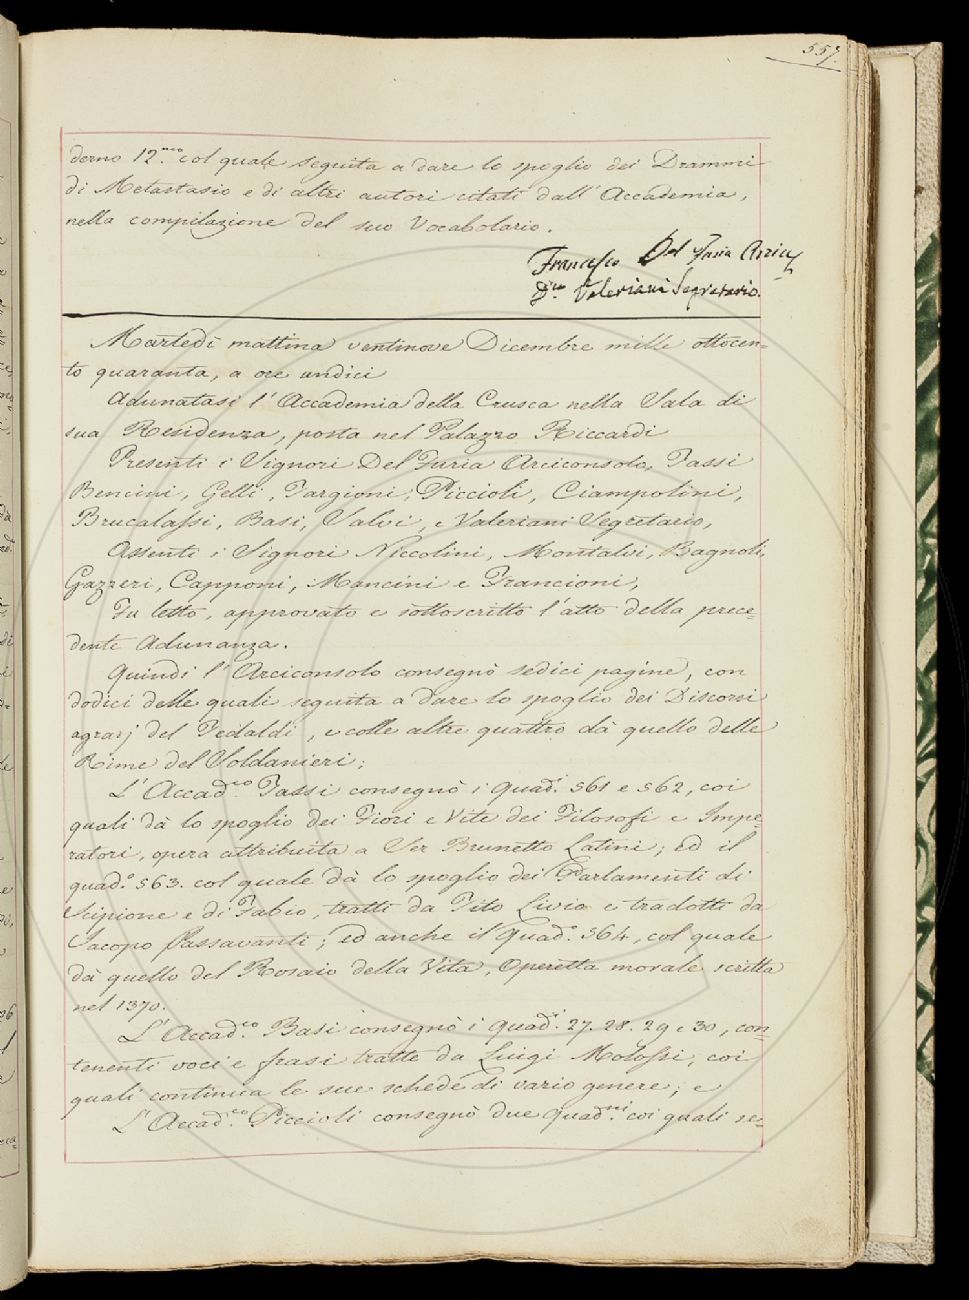 557.
derno 12.mo col quale seguita a dare lo spoglio dei Drammi
di Metastasio e di altri autori citati dall'Accademia,
nella compilazione del suo Vocabolario.
Francesco Del Furia Arcic
Valeriani Segretario.
Martedì mattina ventinove Dicembre mille ottocen=
to quaranta, a ore undici
Adunatasi l'Accademia della Crusca nella Sala di
sua Residenza, posta nel Palazzo Riccardi
Presenti i Signori Del Furia Arciconsolo, Tassi
Bencini, Gelli, Targioni, Piccioli, Ciampolini,
Brucalassi, Basi, Salvi, e Valeriani Segretario,
Assenti i Signori Niccolini, Montalvi, Bagnoli,
Gazzeri, Capponi, Mancini e Francioni,
Fu letto, approvato e sottoscritto l'atto della prece=
dente Adunanza.
Quindi l'Arciconsolo consegnò sedici pagine, con
dodici delle quali seguita a dare lo spoglio dei Discorsi
agrarj del Tedaldi, e colle altre quattro dà quello delle
Rime del Soldanieri;
L'Accad.co Tassi consegnò i Quad.i 561 e 562, coi
quali dà lo spoglio dei Fiori e Vite dei Filosofi e Impe=
ratori, opera attribuita a Ser Brunetto Latini; ed il
quad.o 563. col quale dà lo spoglio dei Parlamenti di
Scipione e di Fabio, tratti da Tito Livio e tradotti da
Jacopo Passavanti; ed anche il Quad.o 564, col quale
dà quello del Rosaio della Vita, Operetta morale scritta
nel 1370.
L'Accad.co Basi consegnò i Quad.i 27. 28. 29 e 30, con=
tenenti voci e frasi tratte da Luigi Molossi, coi
quali continua le sue schede di vario genere; e
L'Accad.co Piccioli consegnò due Quad.ni coi quali se=